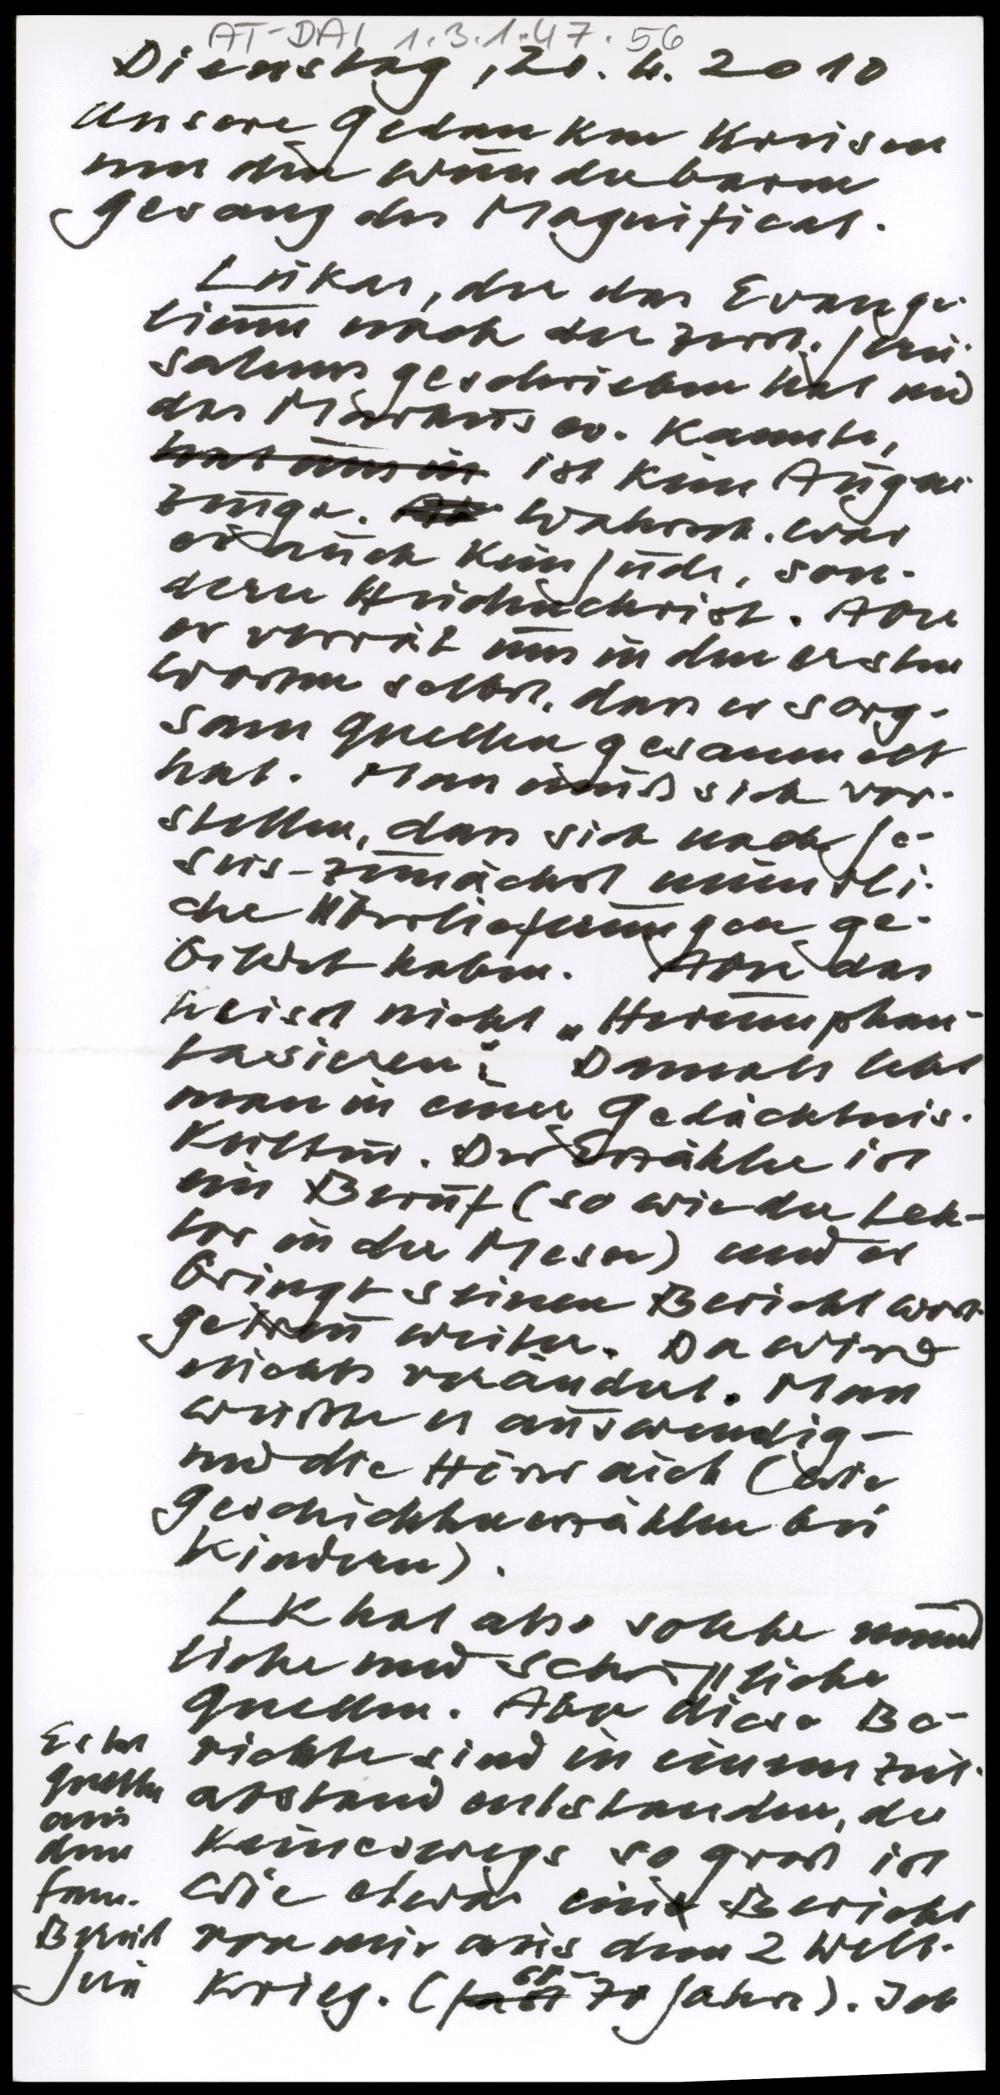 AT-DAI 1.3.1.47.56
Dienstag, 20.4.2010
Unsere Gedanken kreisen
um den wunderbaren
Gesang des Magnificat.
Lukas, der das Evange-
lium nach der Zerst. Jeru-
salems geschrieben hat und
das Markus ev. kannte,
ist kein Augen-
zeuge. Wahrsch. war
er auch kein Jude, son-
dern Heidenchrist. Aber
er verrät uns in den ersten
Worten selbst, dass er sorg-
sam Quellen gesammelt
hat. Man muß sich vor-
stellen, dass sich nach Je-
sus - zunächst mündli-
che Überlieferungen ge-
bildet haben. Aber das
heisst nicht „Herumphan-
tasieren". Damals lebt
man in einer Gedächtnis-
kultur. Der Erzähler ist
ein Beruf (so wie der Lek-
tor in der Messe) und er
bringt seinen Bericht wort-
getreu weiter. Da wird
nichts verändert. Man
wußte es auswendig -
und die Hörer auch (wie
Geschichtenerzählen bei
Kindern).
LK hat also solche münd
liche und schriftliche
Quellen. Aber diese Be-
richte sind in einem Zeit-
abstand entstanden, der
keineswegs so groß ist
wie etwa ein Bericht
von mir aus dem 2 Welt-
krieg. (70 Jahre). Ich
Es hat
Quellen
aus
dem
fam.
Bereich
Jesu